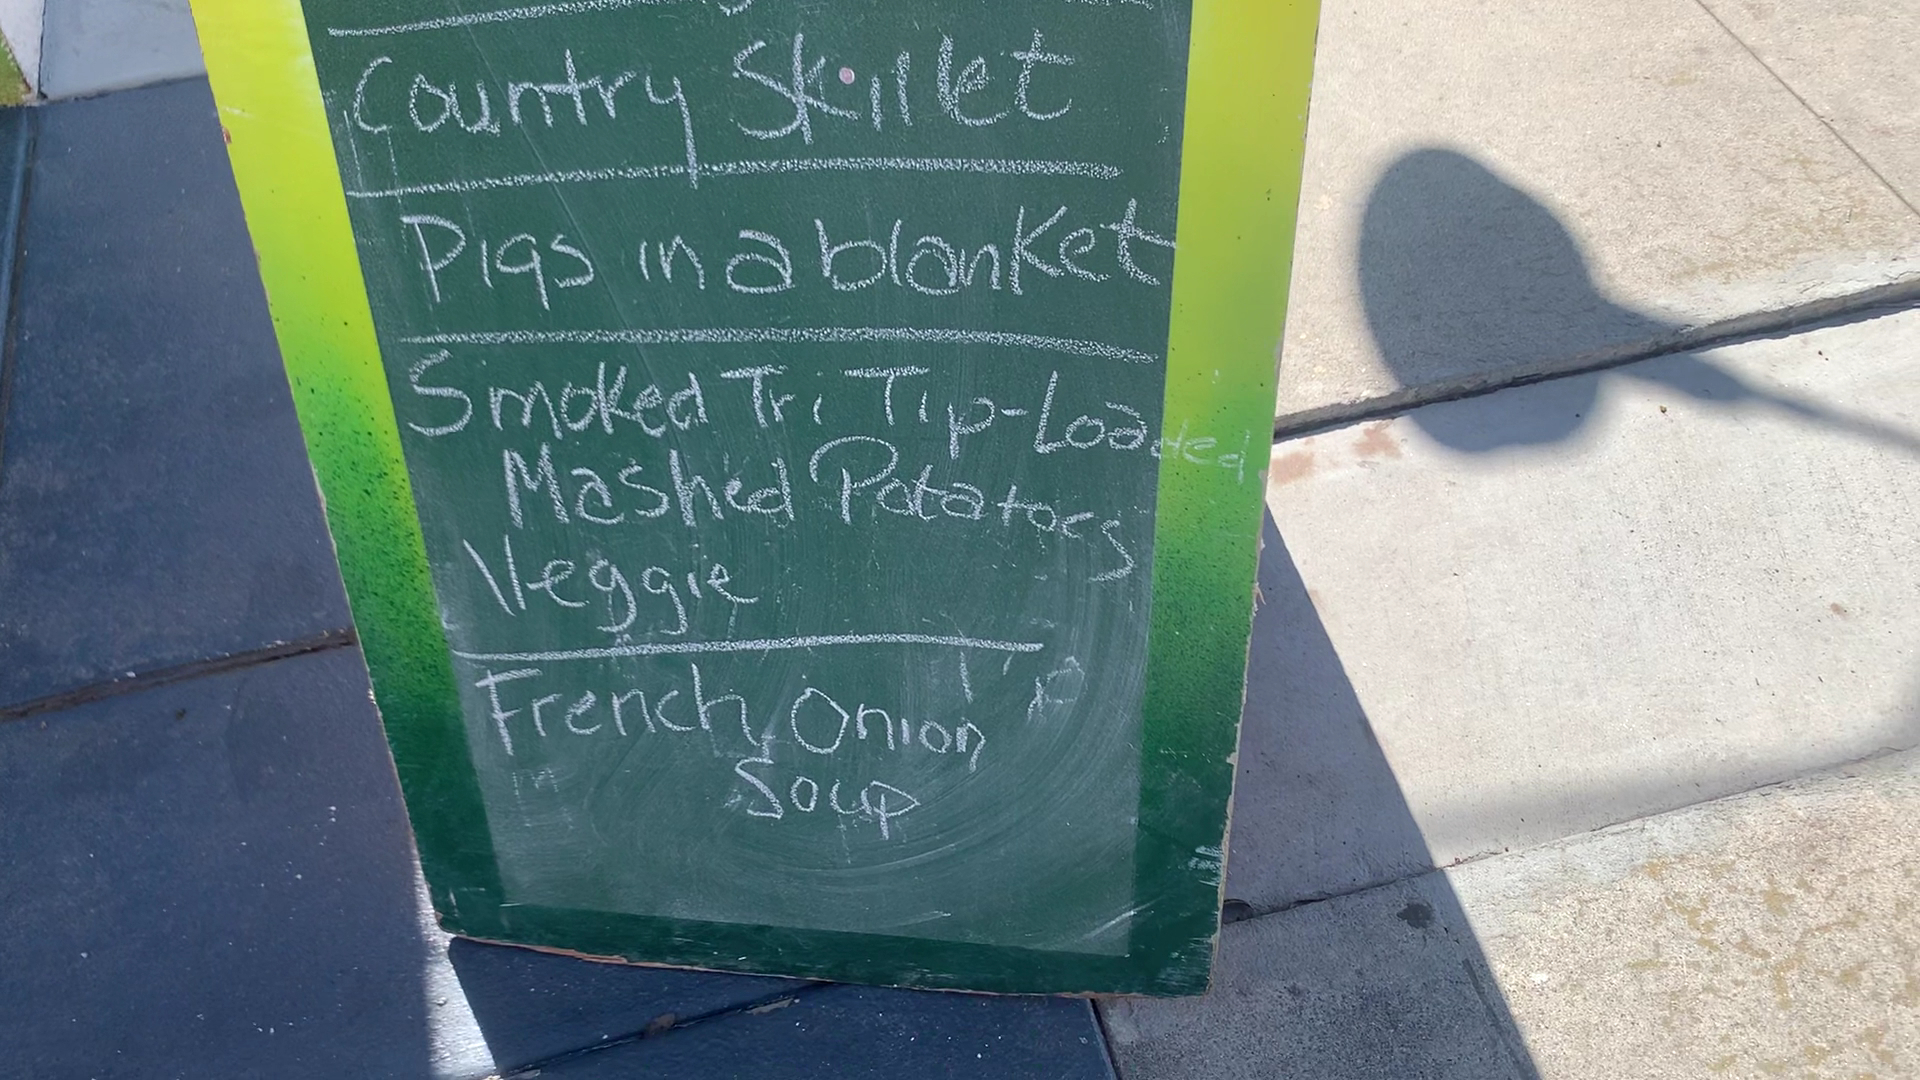 Country Skillet
Pigs in a blanket
Smoked Tri Tip-Loaded
Mashed Potatoes
Veggie
French Onion
Soup